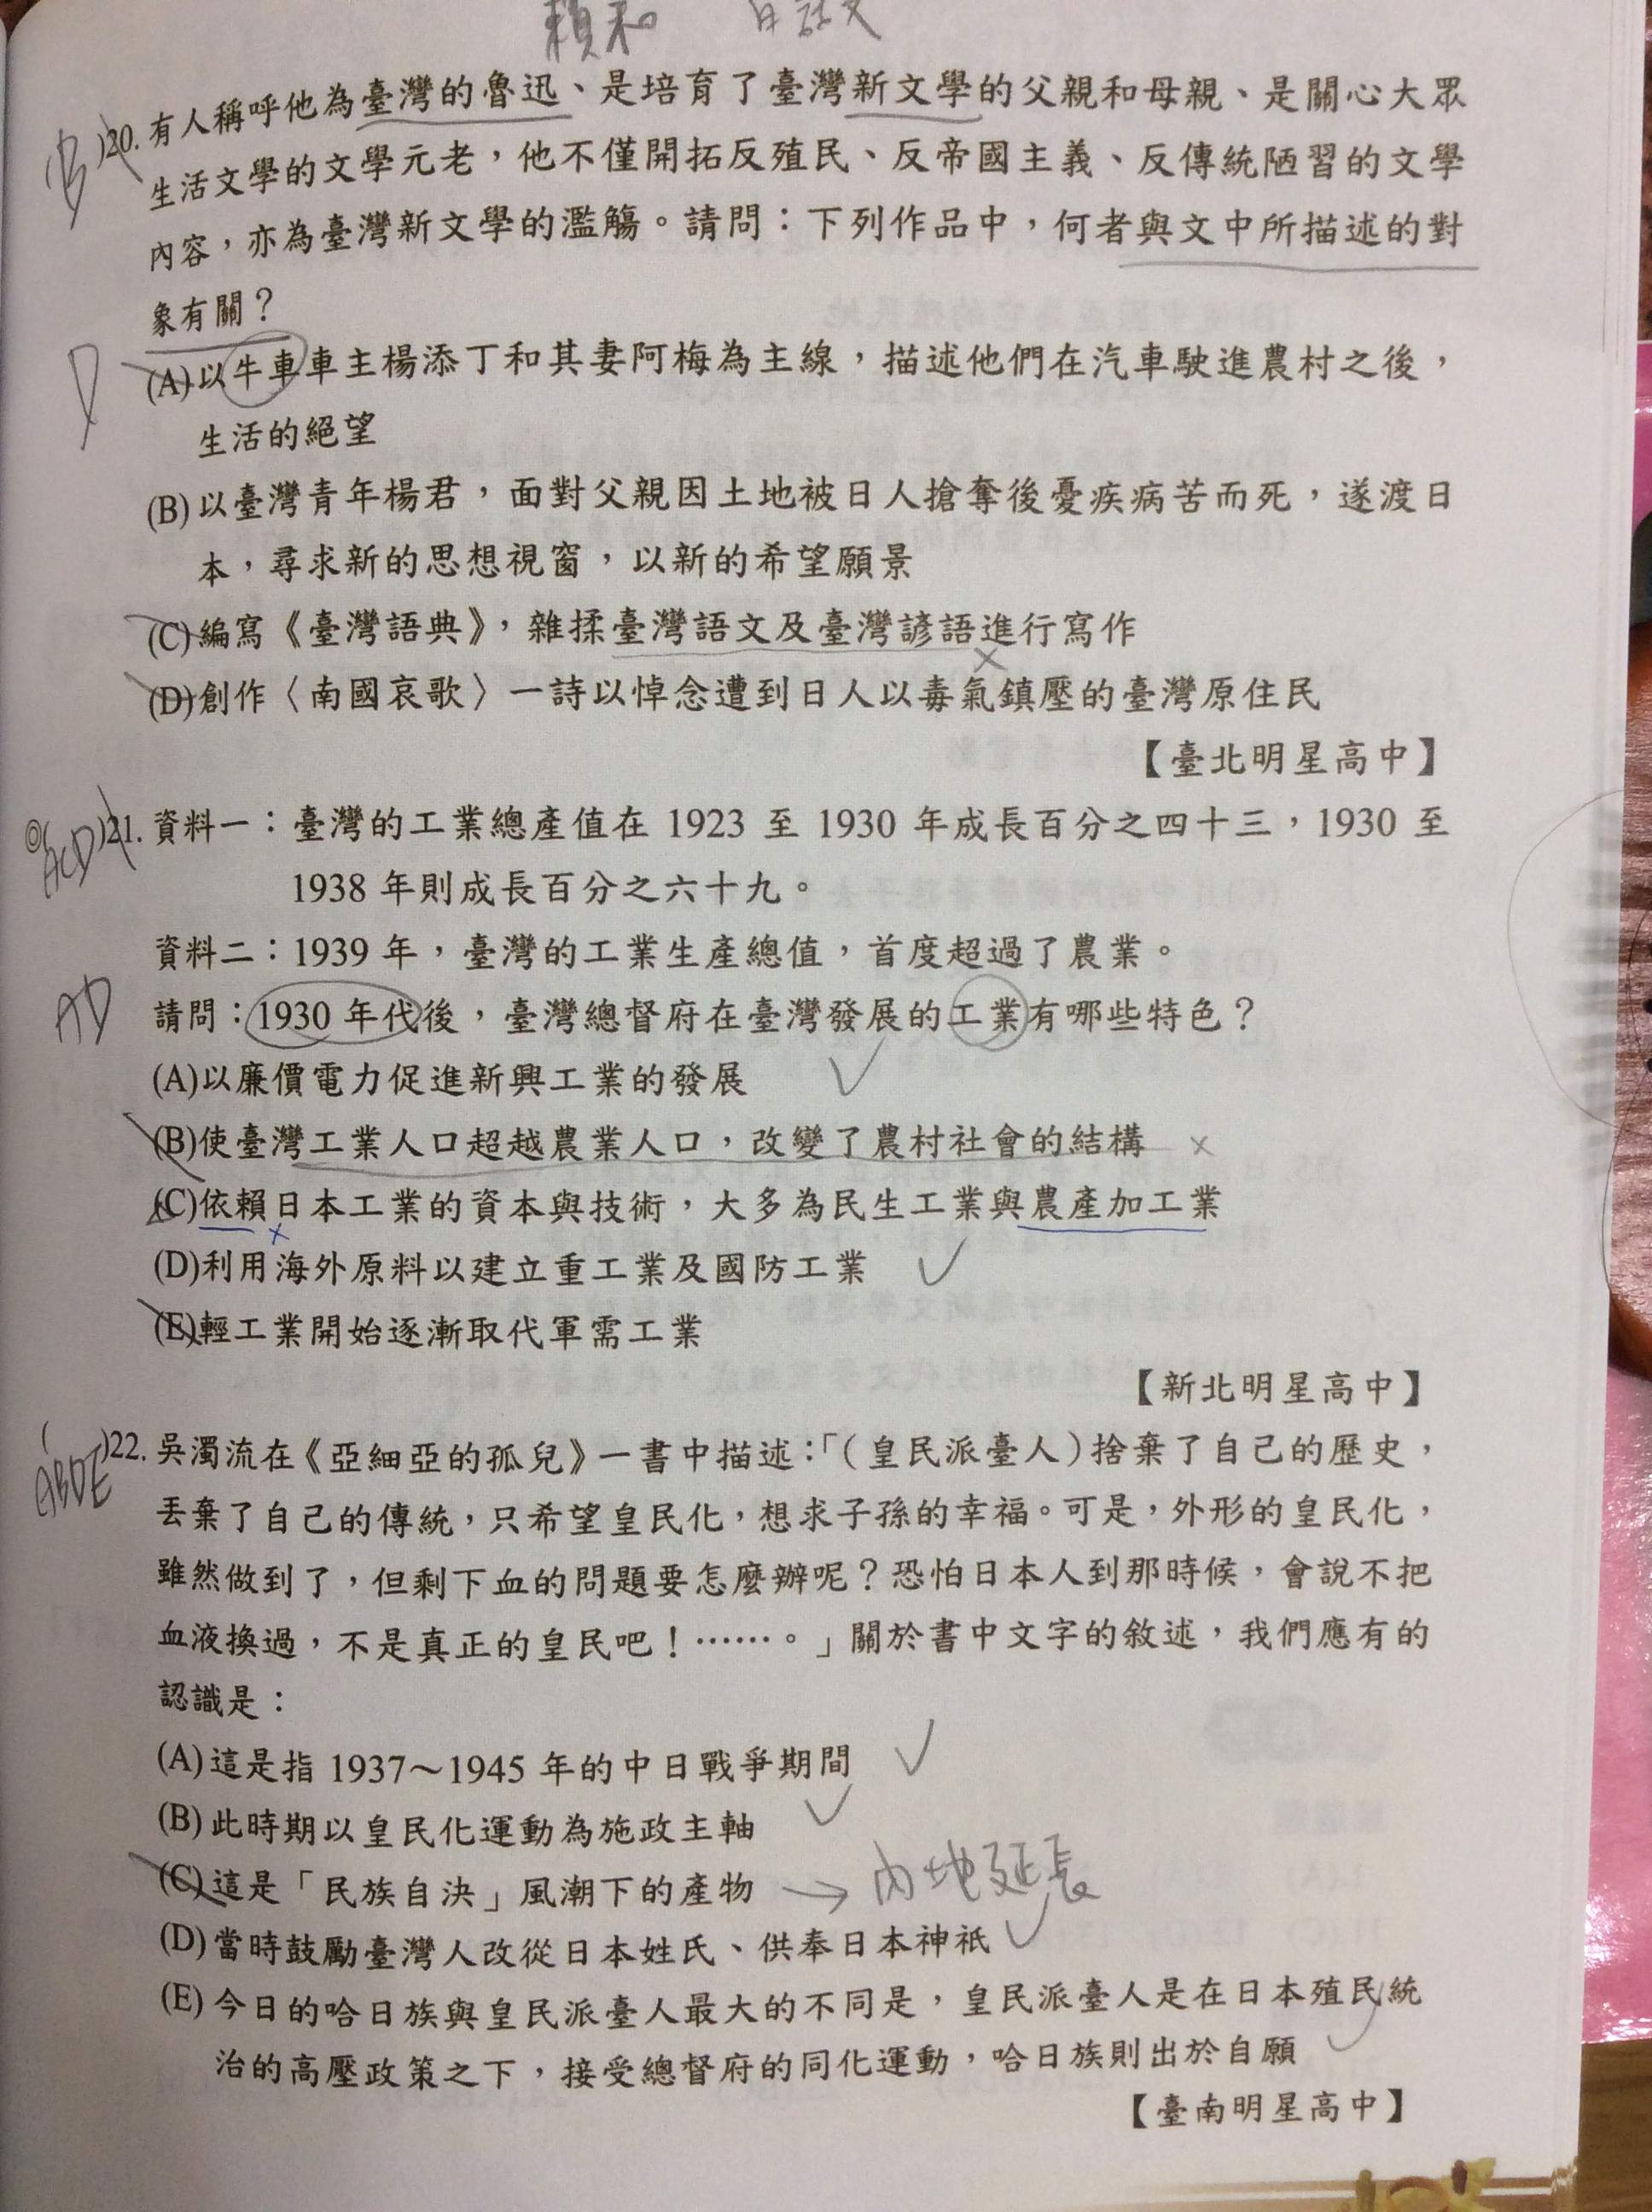 賴和 白話文
B )20. 有人稱呼他為臺灣的魯迅、是培育了臺灣新文學的父親和母親、是關心大眾
生活文學的文學元老，他不僅開拓反殖民、反帝國主義、反傳統陋習的文學
內容，亦為臺灣新文學的濫觴。請問：下列作品中，何者與文中所描述的對
象有關？
D
(A)以牛車車主楊添丁和其妻阿梅為主線，描述他們在汽車駛進農村之後，
生活的絕望
(B)以臺灣青年楊君，面對父親因土地被日人搶奪後憂疾病苦而死，遂渡日
本，尋求新的思想視窗，以新的希望願景
(C)編寫《臺灣語典》，雜揉臺灣語文及臺灣諺語進行寫作
(D)創作〈南國哀歌〉一詩以悼念遭到日人以毒氣鎮壓的臺灣原住民
【臺北明星高中】
◎(ACD )21. 資料一：臺灣的工業總產值在 1923 至 1930 年成長百分之四十三，1930 至
1938 年則成長百分之六十九。
資料二：1939 年，臺灣的工業生產總值，首度超過了農業。
AD
請問：1930 年代後，臺灣總督府在臺灣發展的工業有哪些特色？
(A)以廉價電力促進新興工業的發展
(B)使臺灣工業人口超越農業人口，改變了農村社會的結構
(C)依賴日本工業的資本與技術，大多為民生工業與農產加工業
(D)利用海外原料以建立重工業及國防工業
(E)輕工業開始逐漸取代軍需工業
【新北明星高中】
(ABDE )22. 吳濁流在《亞細亞的孤兒》一書中描述：「（皇民派臺人）捨棄了自己的歷史，
丟棄了自己的傳統，只希望皇民化，想求子孫的幸福。可是，外形的皇民化，
雖然做到了，但剩下血的問題要怎麼辦呢？恐怕日本人到那時候，會說不把
血液換過，不是真正的皇民吧！……。」關於書中文字的敘述，我們應有的
認識是：
(A)這是指 1937～1945 年的中日戰爭期間
(B)此時期以皇民化運動為施政主軸
(C)這是「民族自決」風潮下的產物 → 內地延長
(D)當時鼓勵臺灣人改從日本姓氏、供奉日本神祇
(E)今日的哈日族與皇民派臺人最大的不同是，皇民派臺人是在日本殖民統
治的高壓政策之下，接受總督府的同化運動，哈日族則出於自願
【臺南明星高中】